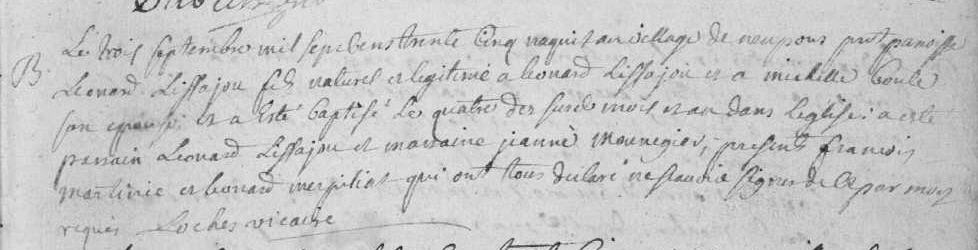 B Le trois septembre mil sept cens trente cinq naquit au village de neupons p<sup>nt</sup> paroisse
Leonard Lissajou fils naturel et legitime a Leonard Lissajou et a michelle boule
son epouse et a esté baptisé le quatre des susd mois et an dans leglise : a esté
parrain Leonard Lissajou et marraine jeanne mounegier, presents francois
martinie et leonard mespiliat qui ont tous declaré ne scavoir signer de ce par moy
requis Loches vicaire